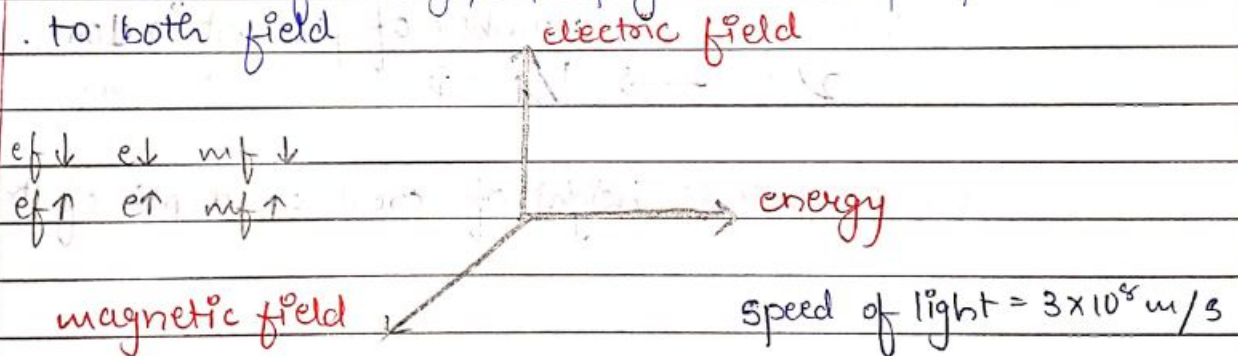 . to both field electric field
ef↓ e↓ mf↓
ef↑ e↑ mf↑ energy
magnetic field speed of light = 3×10⁸ m/s